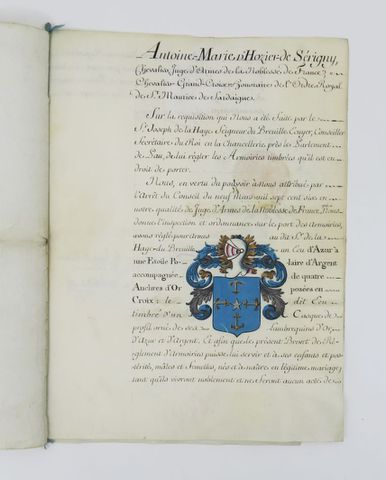 Antoine-Marie d'Hozier-de Sérigny,
Chevalier, Juge d'Armes de la Noblesse de France,
Chevalier-Grand-Croix-honoraire de l'Ordre Royal
de St. Maurice de Sardaigne.
Sur la requisition qui Nous a été faite par le
Sr. Joseph de la Haye Seigneur du Breuille, Ecuyer, Conseiller
Secrétaire du Roi en la Chancellerie près le Parlement
de Pau, de lui régler les Armoiries timbrées qu'il est en
droit de porter.
Nous, en vertu du pouvoir à nous attribué par
l'Arrêt du Conseil du neuf Mars mil sept cent six en
notre qualité de Juge d'Armes de la Noblesse de France,
donner l'inspection et ordonnance sur le port des Armoiries,
avons réglé pour Armes au dit Sr. de la
Haye du Breuille un Ecu d'Azur à
une Etoile Po- laire d'Argent
accompagnée de quatre
Anchres d'Or posées en
Croix: le dit Ecu
timbré d'un Casque de
profil orné de ses Lambrequins d'Or,
d'Azur et d'Argent. Et afin que le présent Brevet de Ré-
glement d'Armoiries puisse lui servir et à ses enfants et pos-
térité, mâles et femelles, nés et à naître en légitime mariage,
tant qu'ils vivront noblement et ne feront aucun acte de